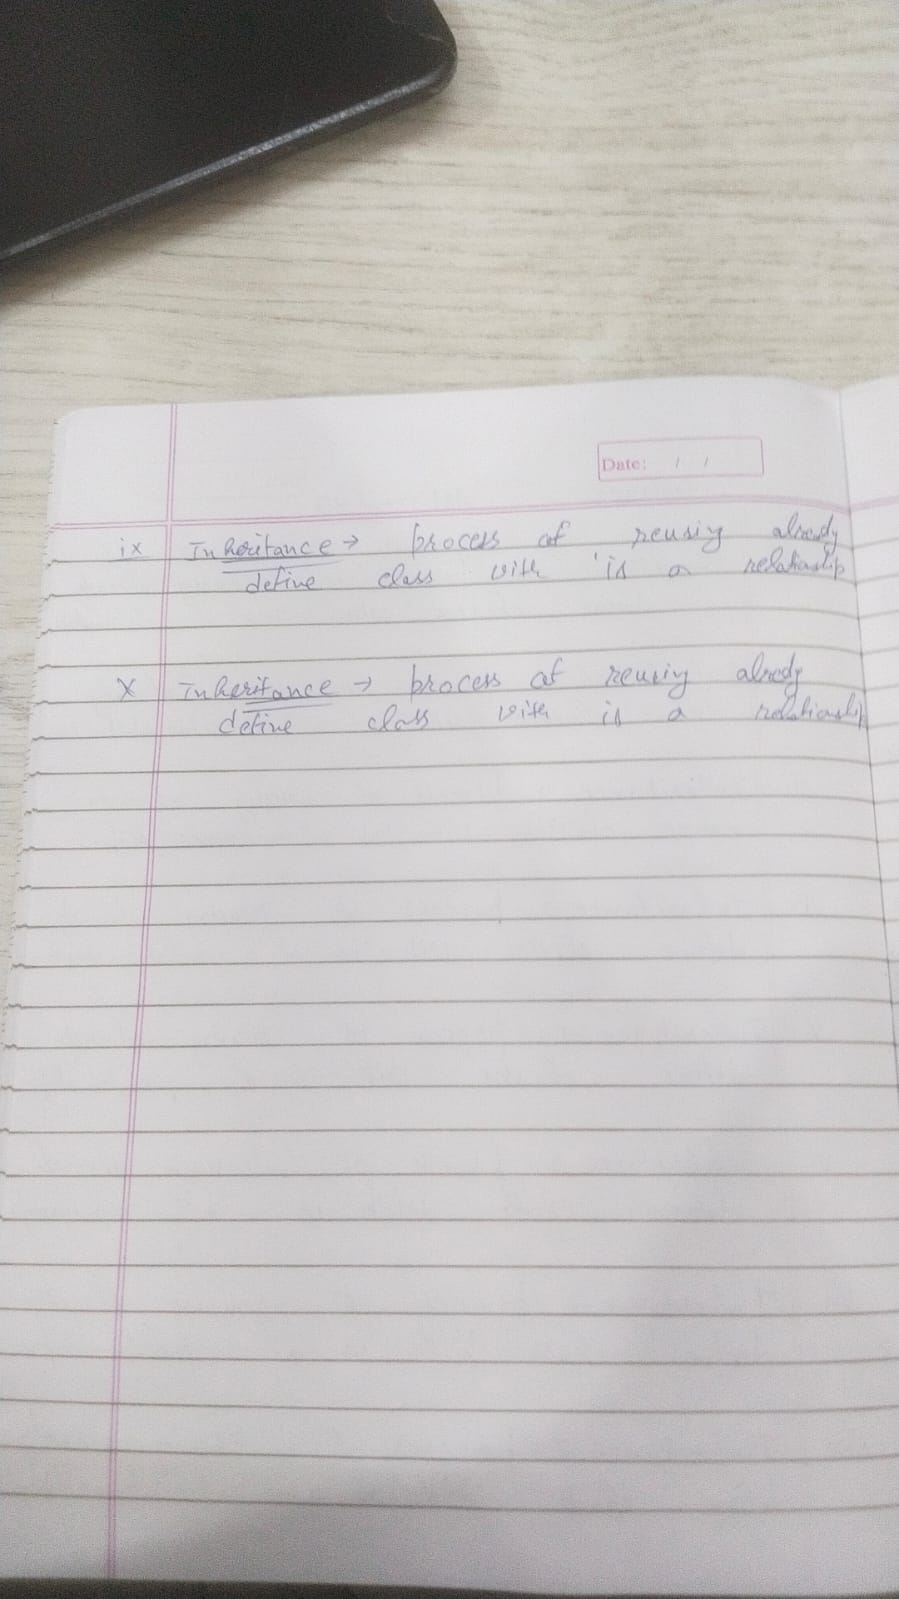 Date: / /
ix Inheritance → process of reusing already
define class with 'is a relationship
x inheritance → process of reusing already
define class with is a relationship